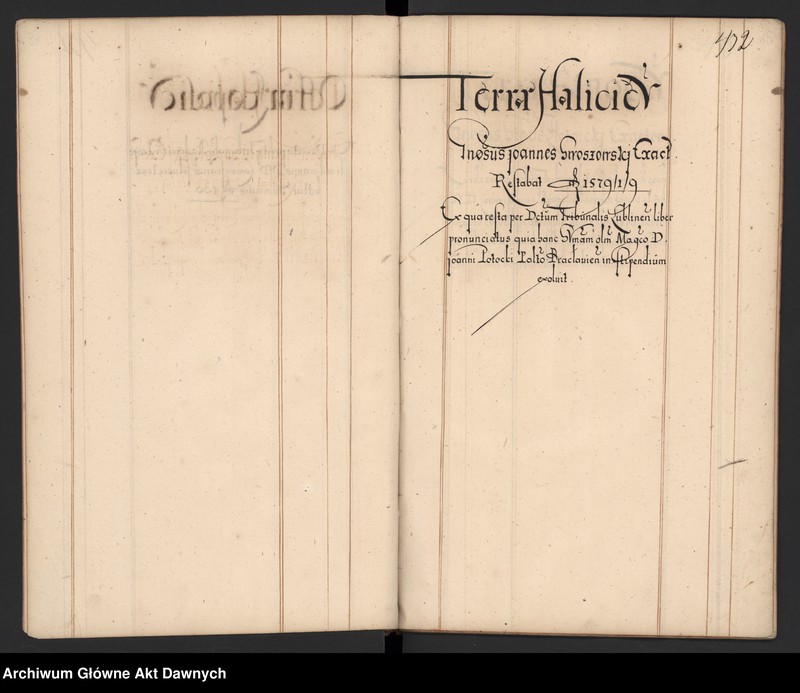 432
Terræ Haliciēn
Gnosus Joannes Swoszowskj Exact.
Restabat fl 1579/1/9
Ex qua resta per Dctum Tribunalis Lublinen liber
pronunciatus quia hanc Summam olim Magco D.
Joanni Potocki Palno Braclavien in stipendium
exoluit.
Archiwum Główne Akt Dawnych